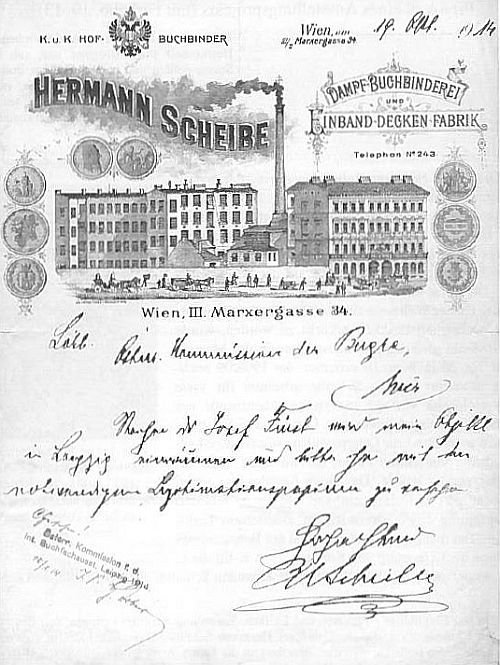 K. u. K. HOF- BUCHBINDER
Wien, am 19. Okt. 1914
III/2 Marxergasse 34
HERMANN SCHEIBE
DAMPF-BUCHBINDEREI
UND
EINBAND-DECKEN-FABRIK
Telephon No 243
Wien, III. Marxergasse 34.
Löbl. Österr. Kommission der Bugra,
Wien
Josef Fürst wird mein Objekt
in Leipzig einräumen und bitte ihn mit den
notwendigen Legitimationspapieren zu versehen
Hochachtend
HScheibe
Österr. Kommission f. d.
Int. Buchfachausst. Leipzig 1914